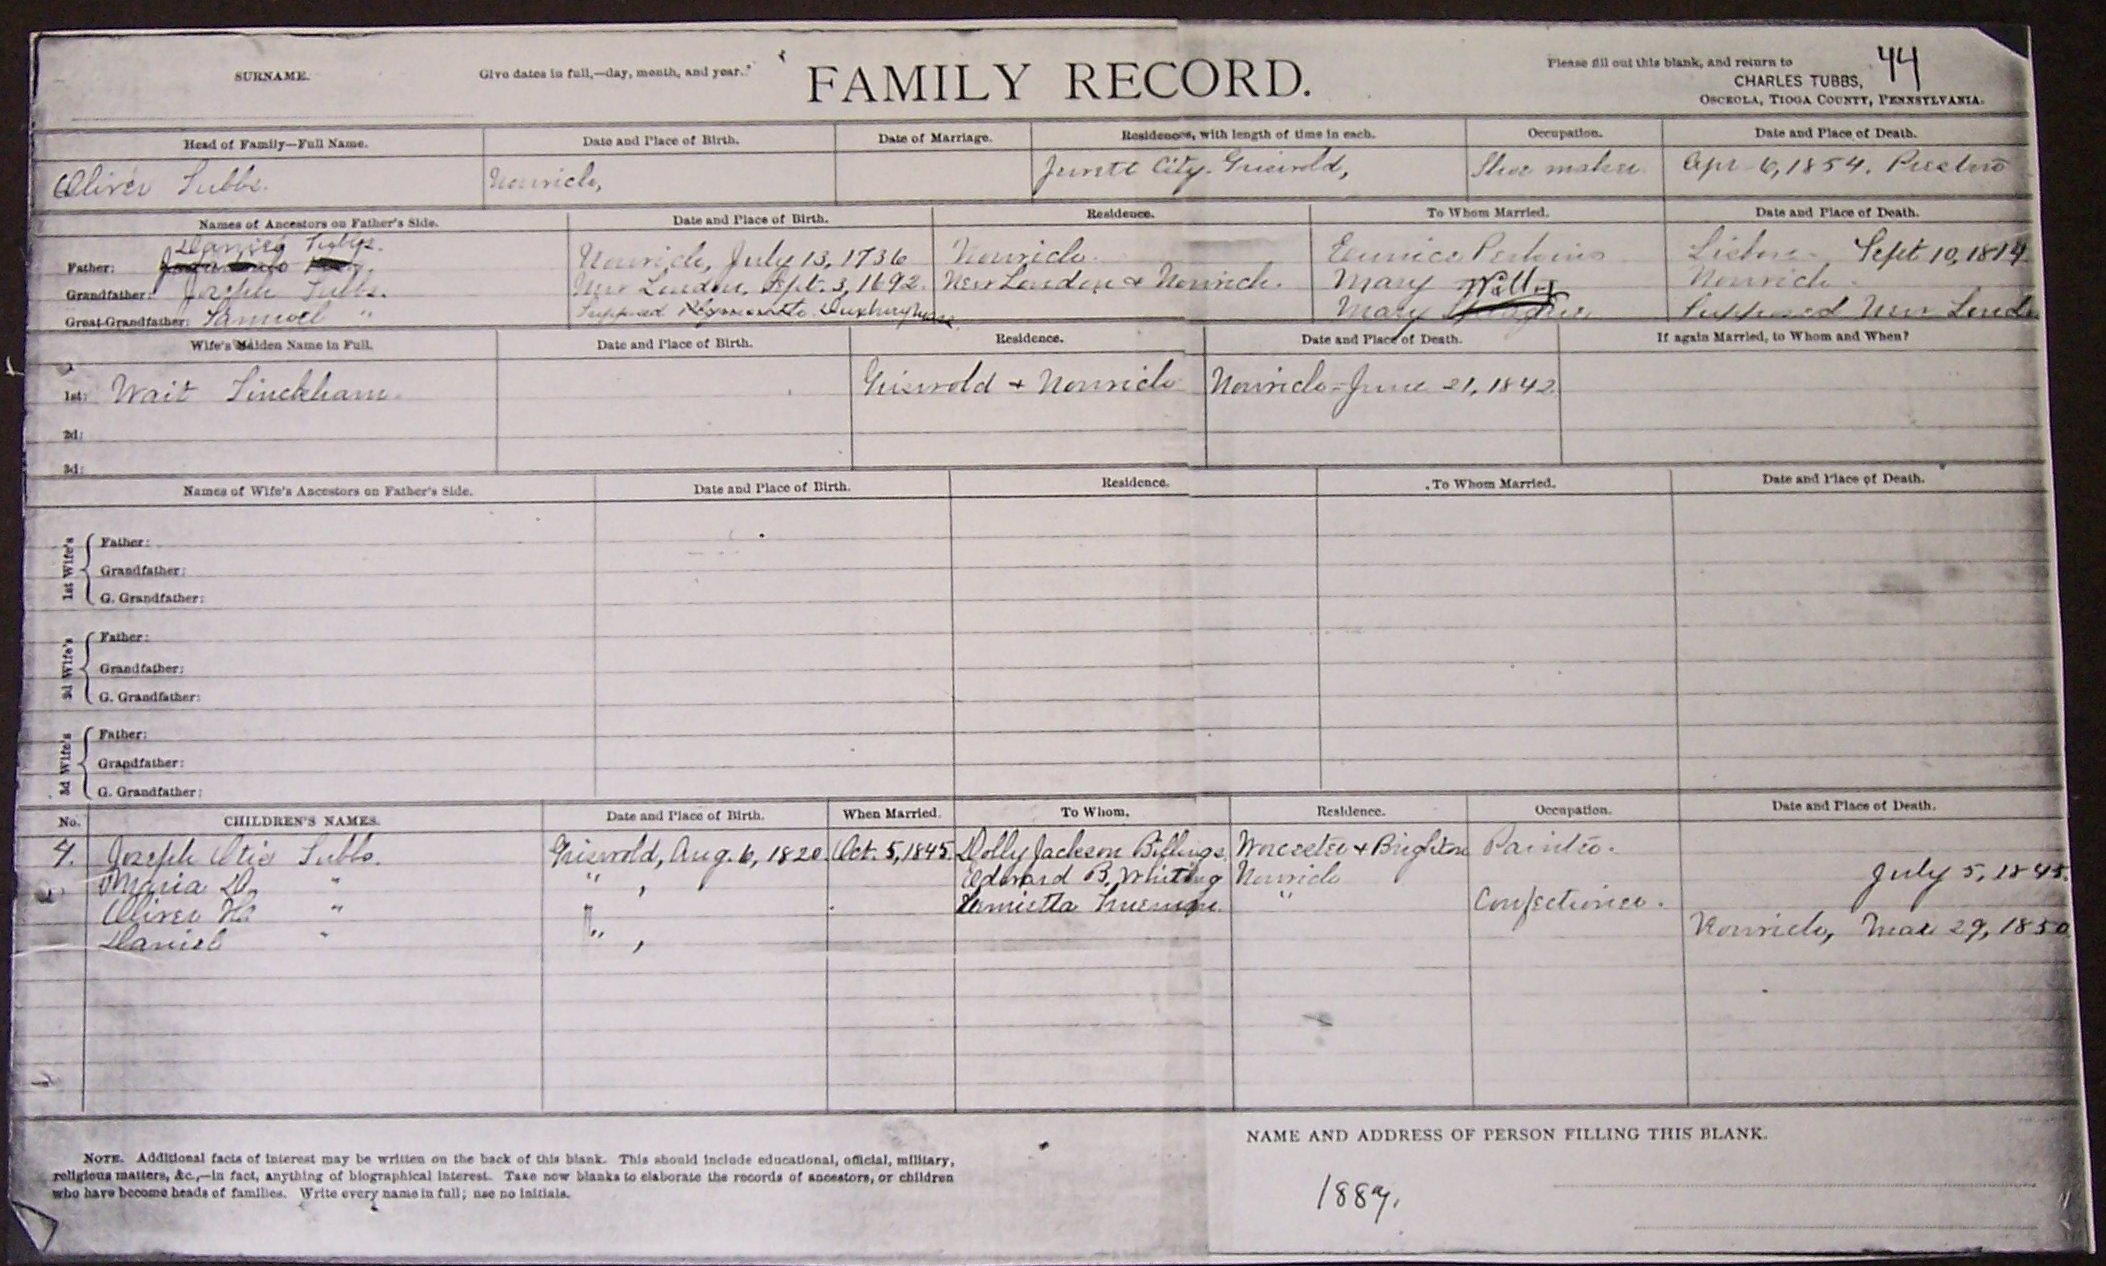 SURNAME. Give dates in full,—day, month, and year. FAMILY RECORD. Please fill out this blank, and return to 44
CHARLES TUBBS,
OSCEOLA, TIOGA COUNTY, PENNSYLVANIA.
Head of Family—Full Name. Date and Place of Birth. Date of Marriage. Residences, with length of time in each. Occupation. Date and Place of Death.
Oliver Tubbs. Norwich, Jewett City. Griswold, Shoe maker. Apr 6, 1854. Preston
Names of Ancestors on Father's Side. Date and Place of Birth. Residence. To Whom Married. Date and Place of Death.
Daniel Tubbs.
Father: Norwich, July 13, 1736 Norwich. Eunice Perkins Lisbon - Sept 10, 1814
Grandfather: Joseph Tubbs. New London, Sept. 3, 1692. New London & Norwich. Mary Norwich.
Great-Grandfather: Samuel " Supposed Duxbury Mary Supposed New London
Wife's Maiden Name in Full. Date and Place of Birth. Residence. Date and Place of Death. If again Married, to Whom and When?
1st: Wait Tinckham. Griswold & Norwich Norwich - June 21, 1842.
2d:
3d:
Names of Wife's Ancestors on Father's Side. Date and Place of Birth. Residence. To Whom Married. Date and Place of Death.
1st Wife's
Father:
Grandfather:
G. Grandfather:
2d Wife's
Father:
Grandfather:
G. Grandfather:
3d Wife's
Father:
Grandfather:
G. Grandfather:
No. CHILDREN'S NAMES. Date and Place of Birth. When Married. To Whom. Residence. Occupation. Date and Place of Death.
Joseph Otis Tubbs. Griswold, Aug. 6, 1820. Oct. 5, 1845. Dolly Jackson Billings. Worcester & Brighton Painter.
Maria D. " " , Edward B. Whiting Norwich July 5, 1845.
Oliver H. " " Henrietta Truman. " Confectioner.
Daniel " " , Norwich, Mar 29, 1850
NAME AND ADDRESS OF PERSON FILLING THIS BLANK.
NOTE. Additional facts of interest may be written on the back of this blank. This should include educational, official, military,
religious matters, &c.,—in fact, anything of biographical interest. Take new blanks to elaborate the records of ancestors, or children
who have become heads of families. Write every name in full; use no initials.
1887.